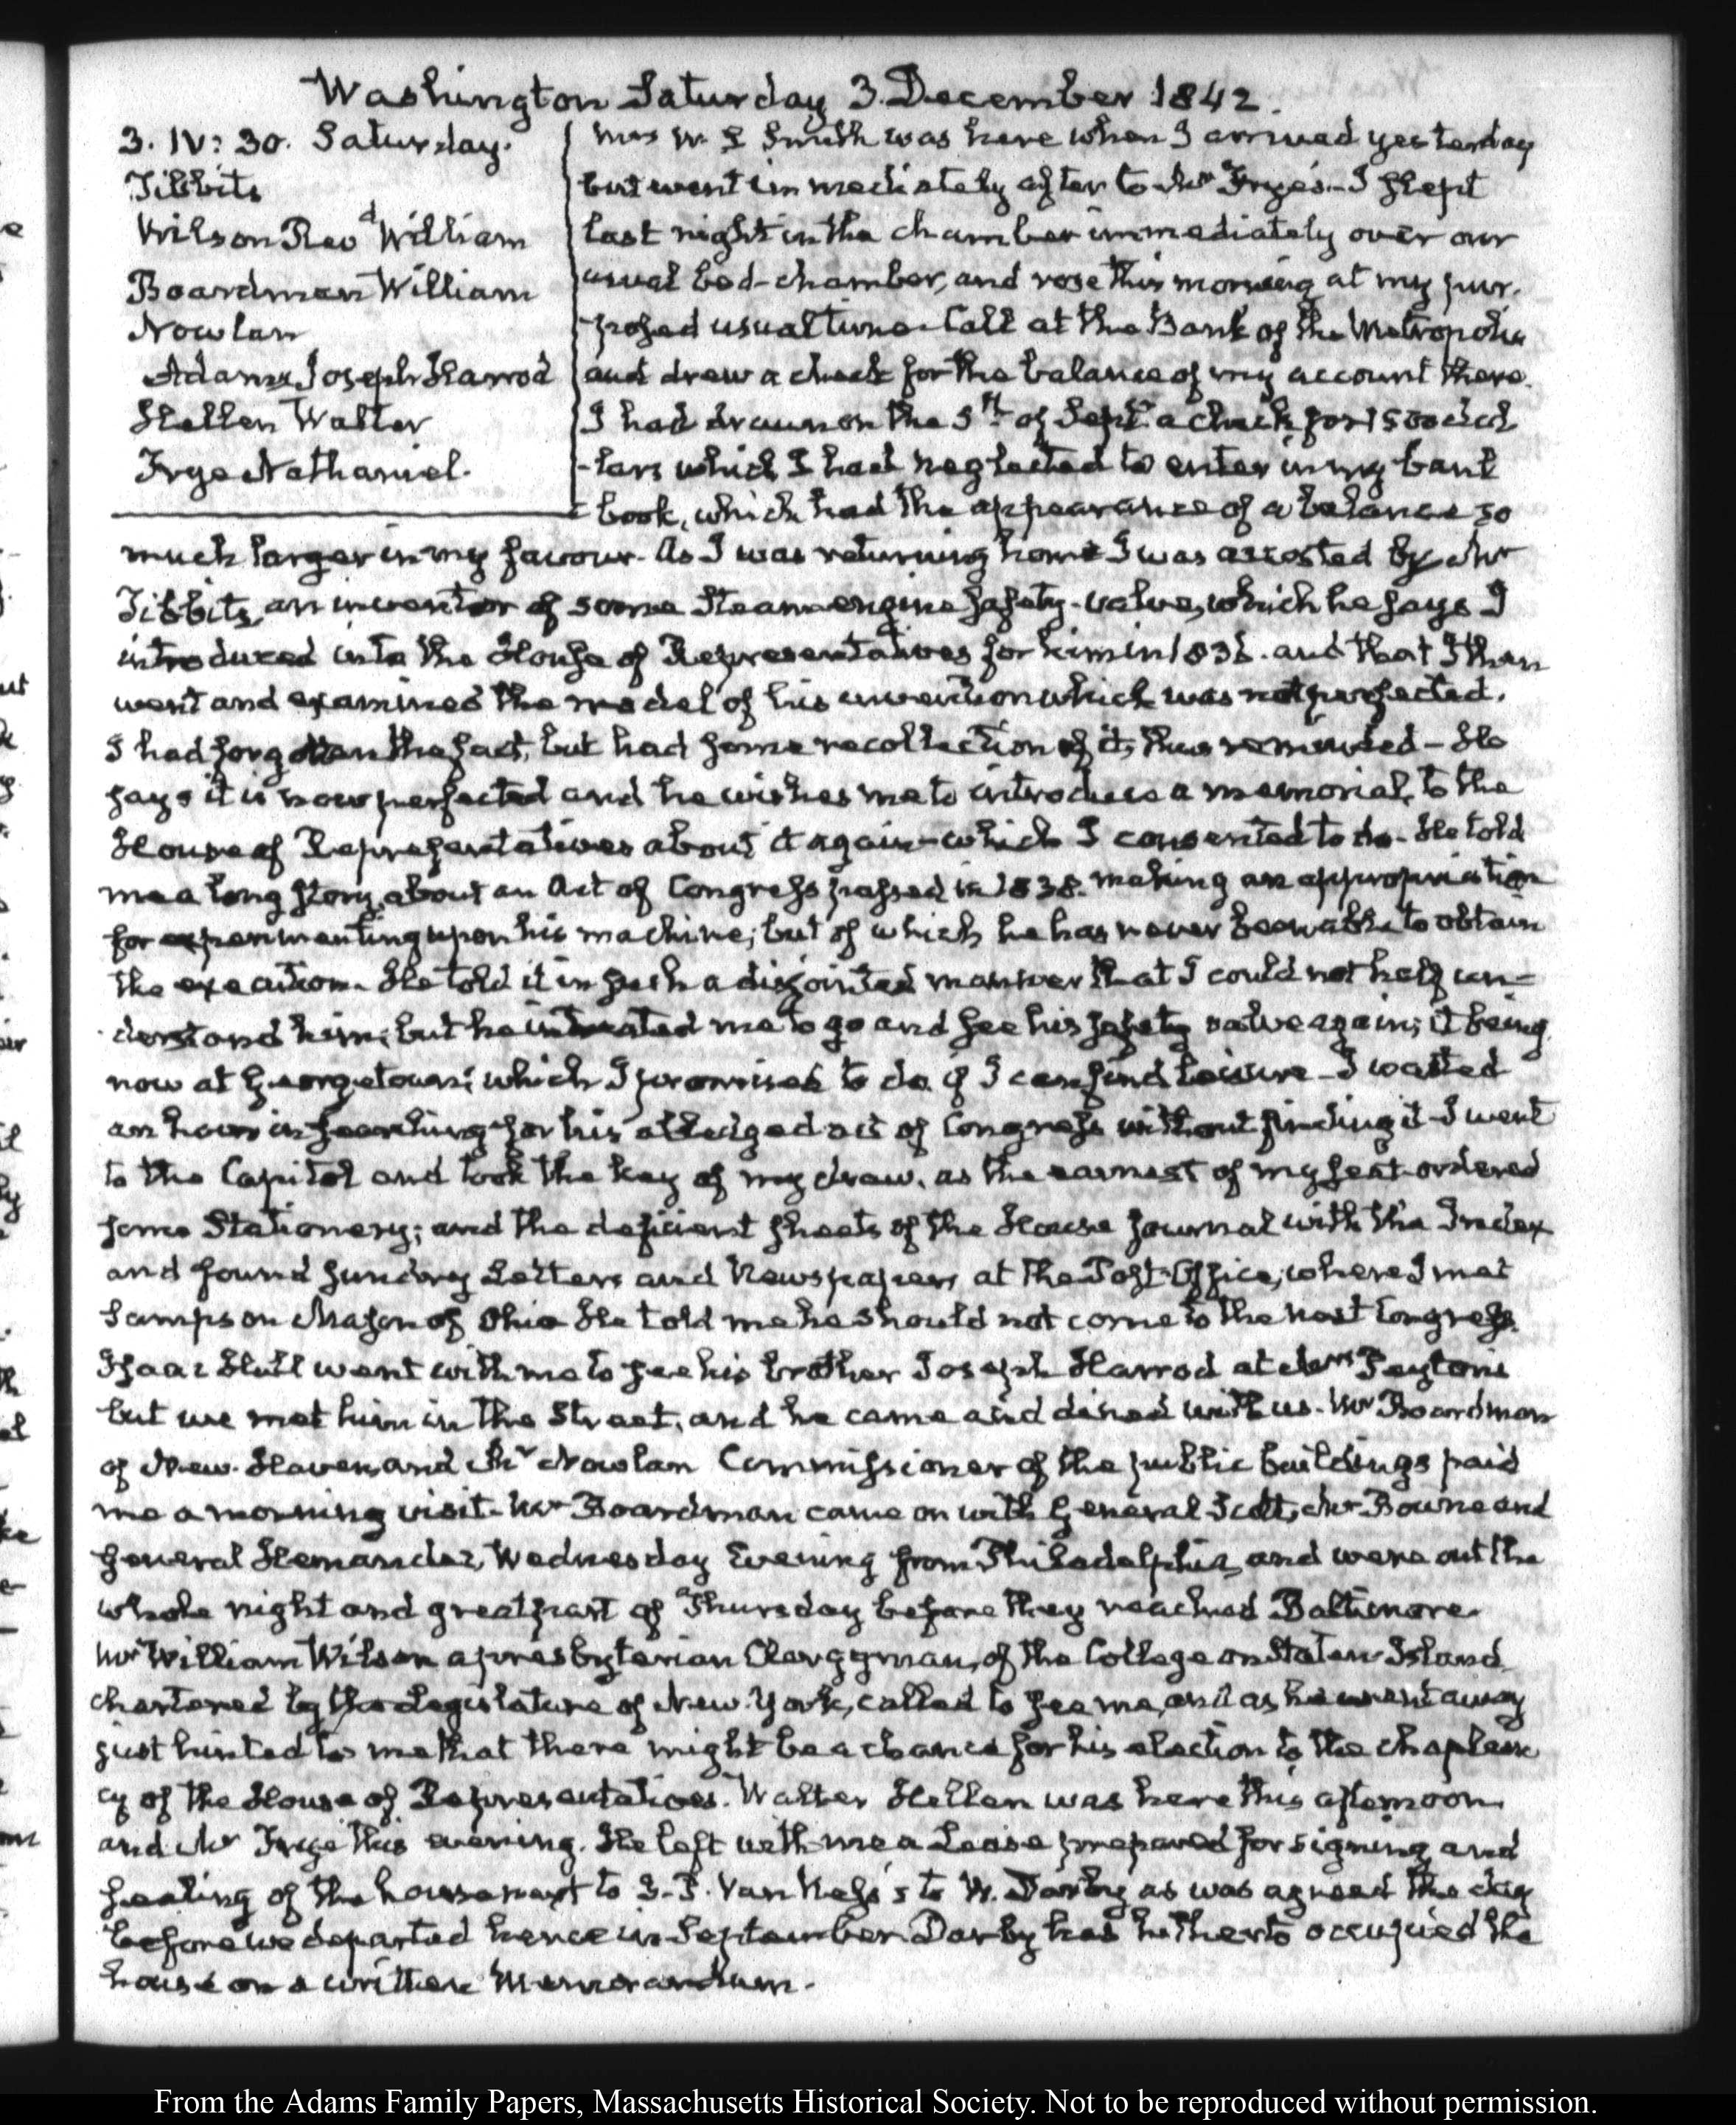 Washington Saturday 3. December 1842.
3. IV: 30. Saturday.
Tibbits
Wilson Revd William
Boardman William
Nowlan
Adams Joseph Harrod
Hellen Walter
Frye Nathaniel.
Mrs W. S Smith was here when I arrived yesterday
but went immediately after to Mr Frye's. I slept
last night in the chamber immediately over our
usual bed-chamber, and rose this morning at my pur-
-posed usual time. Call at the Bank of the Metropolis
and drew a check for the balance of my account there.
I had drawn on the 5th of Septr a check for 1500 dol
-lars which I had neglected to enter in my bank
book, which had the appearance of a balance so
much larger in my favour. As I was returning home I was accosted by Mr
Tibbits, an inventor of some Steam engine safety-valve, which he says I
introduced into the House of Representatives for him in 1836. and that I then
went and examined the model of his invention which was not perfected.
I had forgotten the fact, but had some recollection of it, thus reminded - He
says it is now perfected and he wishes me to introduce a memorial, to the
House of Representatives about it again - which I consented to do - He told
me a long story about an Act of Congress passed in 1838. making an appropriation
for experimenting upon his machine; but of which he has never been able to obtain
the execution. He told it in such a disjointed manner that I could not help un-
derstand him; but he intreated me to go and see his safety valve again; it being
now at Georgetown; which I promised to do if I can find leisure - I wasted
an hour in searching for his alledged act of Congress without finding it - I went
to the Capitol and took the key of my draw, as the earnest of my seat - ordered
some Stationery; and the deficient sheets of the House Journal with the Index
and found sundry Letters and Newspapers at the Post-Office, where I met
Sampson Mason of Ohio He told me he should not come to the next Congress.
Isaac Hull went with me to see his brother Joseph Harrod at Mrs Peyton's
but we met him in the Street, and he came and dined with us. Mr Boardman
of New-Haven, and Mr Nowlan Commissioner of the public buildings paid
me a morning visit - Mr Boardman came on with General Scott, Mr Bourne and
General Hernandez, Wednesday Evening from Philadelphia, and were out the
whole night and great part of Thursday before they reached Baltimore.
Mr William Wilson a presbyterian Clergyman, of the College on Staten-Island
chartered by the Legislature of New-York, called to see me, and as he went away
just hinted to me that there might be a chance for his election to the chaplain
cy of the House of Representatives. Walter Hellen was here this afternoon
and Mr Frye this evening. He left with me a Lease prepared for signing and
sealing of the house next to J. P. Van Ness's to W. Darby as was agreed the day
before we departed hence in September Darby has hitherto occupied the
house on a written Memorandum.
From the Adams Family Papers, Massachusetts Historical Society. Not to be reproduced without permission.